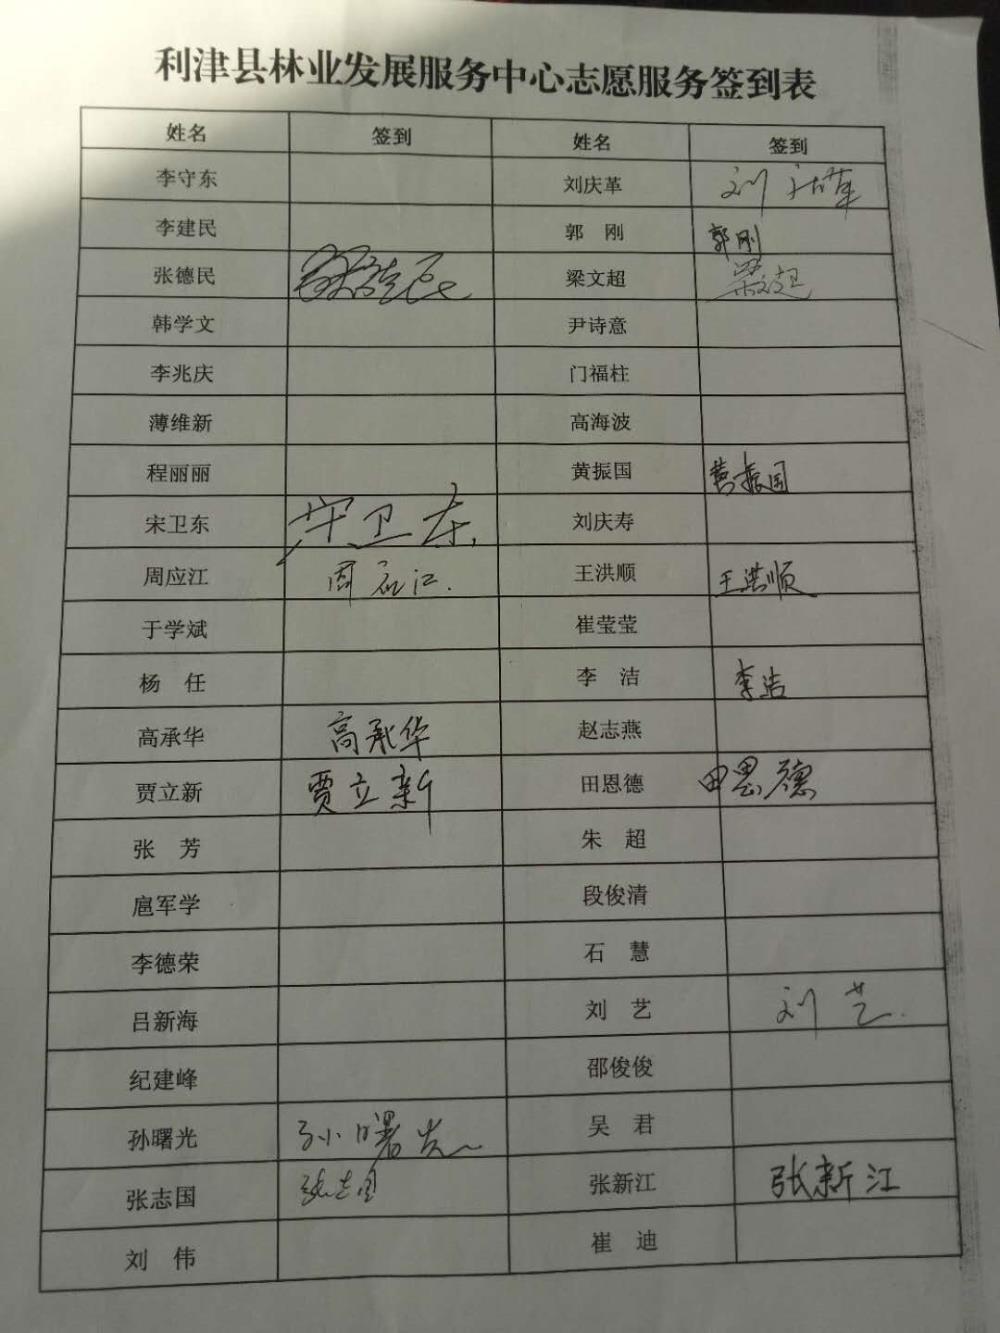 利津县林业发展服务中心志愿服务签到表
姓名 签到 姓名 签到
李守东 刘庆革 刘庆革
李建民 郭 刚 郭刚
张德民 张德民 梁文超 梁文超
韩学文 尹诗意
李兆庆 门福柱
薄维新 高海波
程丽丽 黄振国 黄振国
宋卫东 宋卫东 刘庆寿
周应江 周应江 王洪顺 王洪顺
于学斌 崔莹莹
杨 任 李 洁 李洁
高承华 高承华 赵志燕
贾立新 贾立新 田恩德 田恩德
张 芳 朱 超
扈军学 段俊清
李德荣 石 慧
吕新海 刘 艺 刘艺
纪建峰 邵俊俊
孙曙光 孙曙光 吴 君
张志国 张志国 张新江 张新江
刘 伟 崔 迪